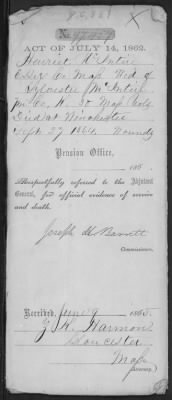 ACT OF JULY 14, 1862.
Harriet McIntire
Essex Co Mass Wid of
Sylvester McIntire
Co. K. 30 Mass Vols
Died at Winchester
Sept 27 1864. Wounds
Pension Office,
186 .
Respectfully referred to the Adjutant
General, for official evidence of service
and death.
Joseph H Barrett
Commissioner.
Received, June 9, 1865.
Harmon
Gloucester
Mass
(Attorney.)